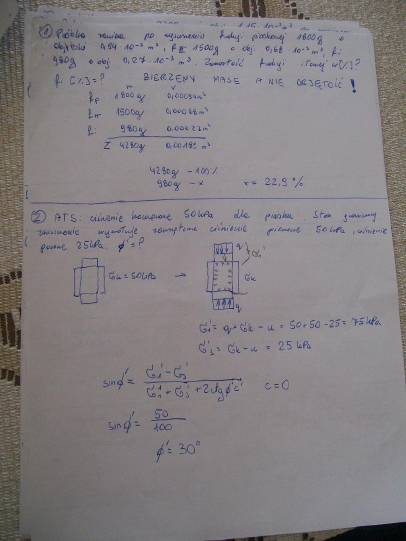 ① Próbka zawiera po wysuszeniu frakcji piaskowej 1800g o
objętości 0,94·10⁻³ m³, fπ 1500g o obj. 0,68·10⁻³ m³, fi
980g o obj. 0,27·10⁻³ m³. Zawartość frakcji iłowej w [%]?
fi [%] = ? BIERZEMY MASĘ A NIE OBJĘTOŚĆ !
m V
fp 1800g 0,00094m³
fπ 1500g 0,00068m³
fi 980g 0,00027m³
Σ 4280g 0,00189m³
4280g – 100%
980g – x x = 22,9%
② ATS: ciśnienie komorowe 50kPa dla piasku. Stan graniczny
ciśnienie pionowe 50kPa, ciśnienie
porowe 25kPa. φ' = ?
σk = 50kPa → q σ1' σk
q
σ1' = q + σk – u = 50+50-25 = 75kPa
σ3' = σk – u = 25kPa
sinφ' = σ1' – σ3'
σ1' + σ3' + 2ctgφ'c' c=0
sinφ' = 50
100
φ' = 30°